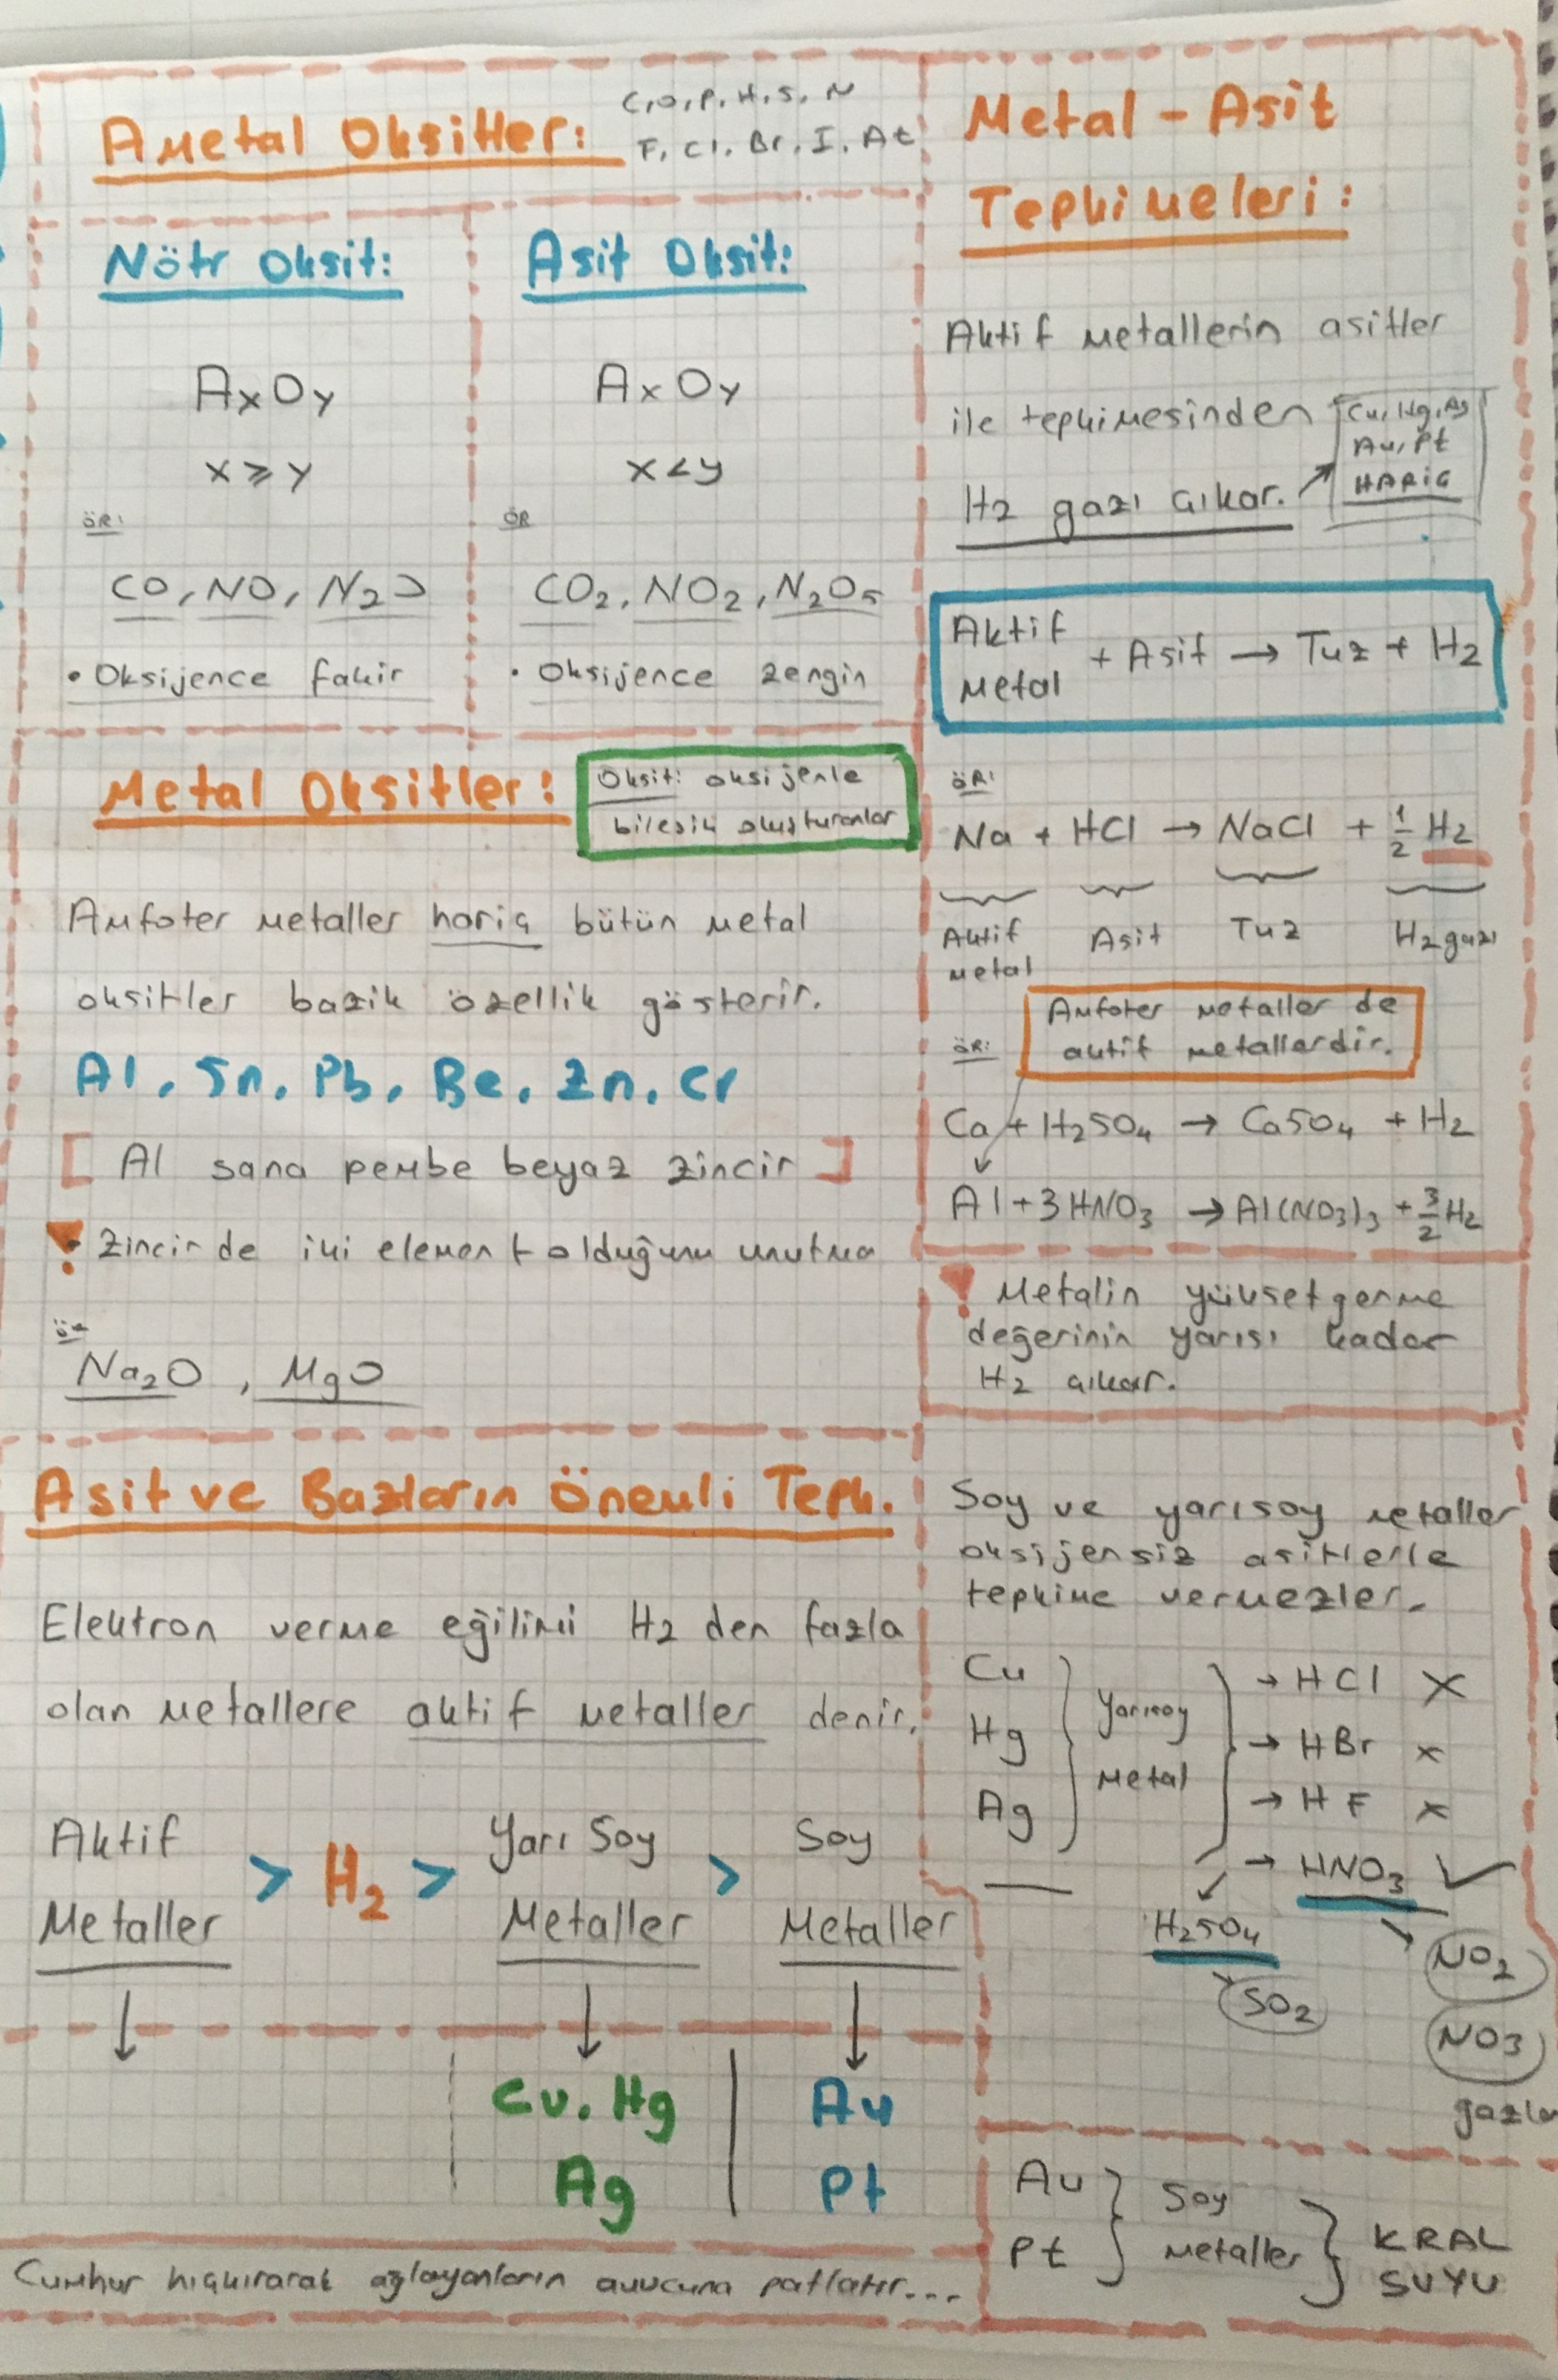 Ametal Oksitler:
C, O, P, H, S, N
F, Cl, Br, I, At
Nötr Oksit:
AxOy
x ≥ y
ÖR:
CO, NO, N2O
• Oksijence fakir
Asit Oksit:
AxOy
x < y
ÖR
CO2, NO2, N2O5
• Oksijence zengin
Metal Oksitler:
Oksit: oksijenle
bileşik oluşturanlar
Amfoter metaller hariç bütün metal
oksitler bazik özellik gösterir.
Al, Sn, Pb, Be, Zn, Cr
[ Al sana pembe beyaz zincir ]
! Zincir de iki element olduğunu unutma
ör
Na2O, MgO
Asit ve Bazların Önemli Tepk.
Elektron verme eğilimi H2 den fazla
olan metallere aktif metaller denir.
Aktif
Metaller
> H2 >
Yarı Soy
Metaller
>
Soy
Metaller
Cu, Hg
Ag
Au
Pt
Cumhur hıçkırarak ağlayanların avucuna patlatır...
Metal - Asit
Tepkimeleri:
Aktif metallerin asitler
ile tepkimesinden
H2 gazı çıkar.
Cu, Hg, Ag
Au, Pt
HARİÇ
Aktif
Metal
+ Asit → Tuz + H2
ÖR:
Na + HCl → NaCl + 1/2 H2
Aktif
metal
Asit
Tuz
H2 gazı
Amfoter metaller de
aktif metallerdir.
ÖR:
Ca + H2SO4 → CaSO4 + H2
Al + 3HNO3 → Al(NO3)3 + 3/2 H2
! Metalin yükseltgenme
değerinin yarısı kadar
H2 çıkar.
Soy ve yarısoy metaller
oksijensiz asitlerle
tepkime vermezler.
Cu
Hg
Ag
Yarısoy
Metal
→ HCl X
→ HBr x
→ HF x
→ HNO3 ✓
H2SO4
SO2
NO2
NO3
Au
Pt
Soy
Metaller
KRAL
SUYU